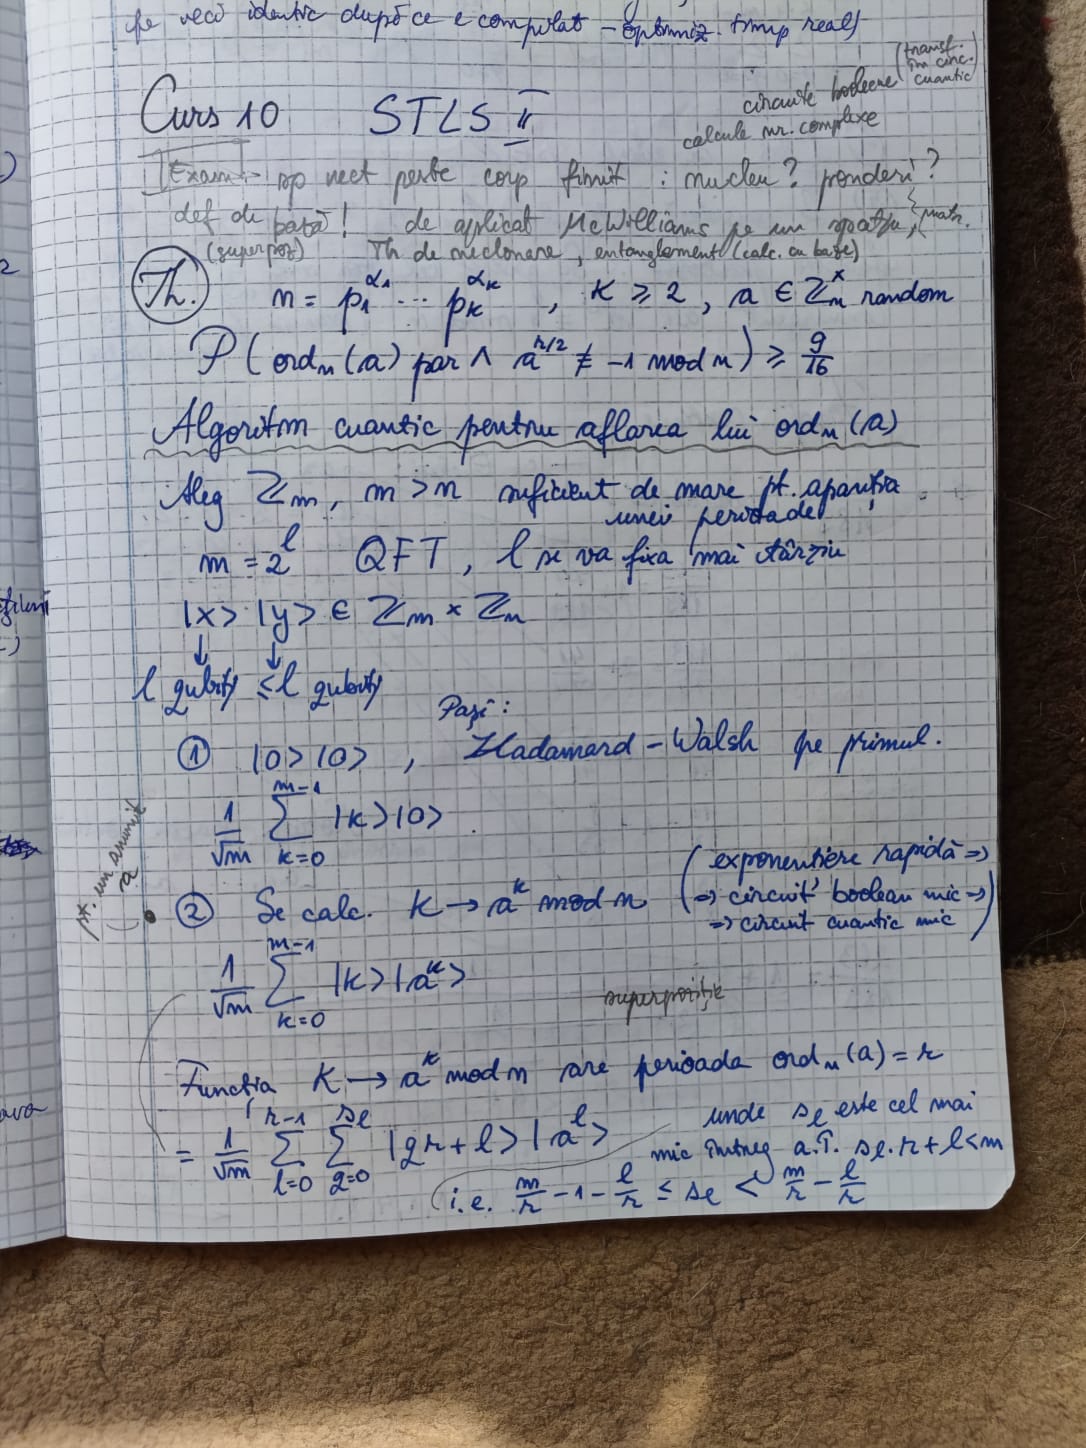 pe veci identic după ce e compilat – optimiz. timp real)
(transf.
în circ.
cuantic
circuite booleene
calcule nr. complexe
Curs 10 STLS II
Exam – sp vect peste corp finit : nucleu? ponderi?
def de bază! de aplicat McWilliams pe un spațiu,
(superpoz) Th de neclonare, entanglement (calc. cu baze)
Th. n = p₁^α₁ ... p_k^α_k , k ≥ 2 , a ∈ ℤ_n^× random
P ( ord_n (a) par ∧ a^{r/2} ≢ -1 mod n ) ≥ 9/16
Algoritm cuantic pentru aflarea lui ord_n (a)
Aleg ℤ_m, m > n suficient de mare pt. apariția
unei perioade
m = 2^l QFT , l se va fixa mai târziu
|x> |y> ∈ ℤ_m × ℤ_n
↓ ↓
l qubiți ≤ l qubiți
Pași:
① |0> |0> , Hadamard – Walsh pe primul.
1/√m ∑_{k=0}^{m-1} |k> |0>
pt. un anumit
a
② Se calc. k → a^k mod n
(exponențiere rapidă ⇒
⇒ circuit boolean mic ⇒
⇒ circuit cuantic mic)
1/√m ∑_{k=0}^{m-1} |k> |a^k>
superpoziție
Funcția k → a^k mod n are perioada ord_n (a) = r
= 1/√m ∑_{l=0}^{r-1} ∑_{q=0}^{s_l} |qr + l> |a^l>
unde s_l este cel mai
mic întreg a.î. s_l · r + l < m
i.e. m/r - 1 - l/r ≤ s_l < m/r - l/r